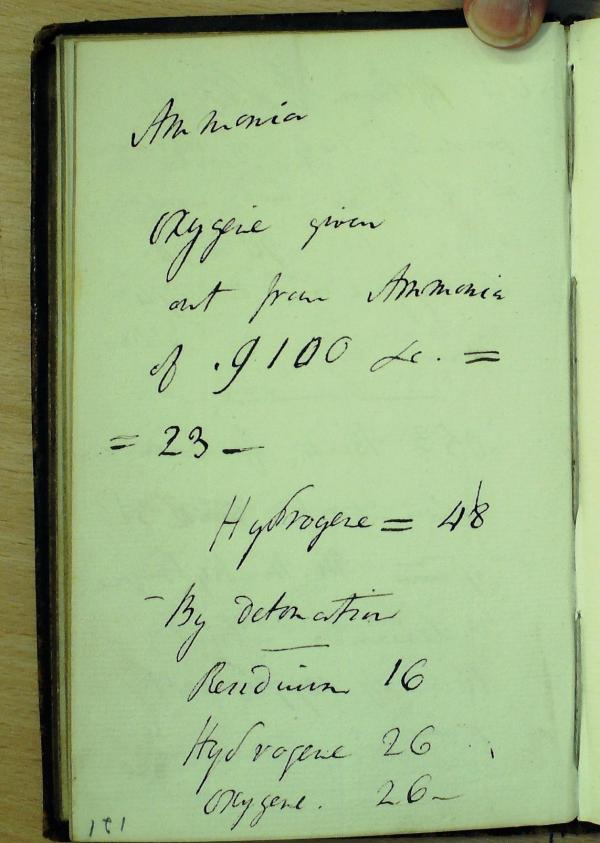 Ammonia
Oxygene given
out from Ammonia
of .9100 &c. =
= 23 –
Hydrogene = 48
– By detonation
Residuum 16
Hydrogene 26
Oxygene. 26 –